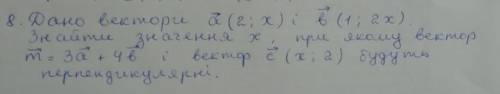 8. Дано вектори a⃗ (2; x) і b⃗ (1; 2x).
Знайти значення x, при якому вектор
m⃗ = 3a⃗ + 4b⃗ і вектор c⃗ (x; 2) будуть
перпендикулярні.